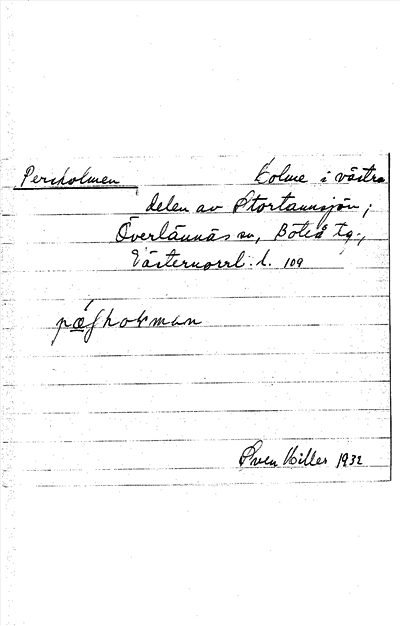 Persholmen Holme i västra
delen av Stortannsjön;
Överlännäs sn, Boteå tg.,
Västernorrl:s l. 109
Sven Hiller 1932